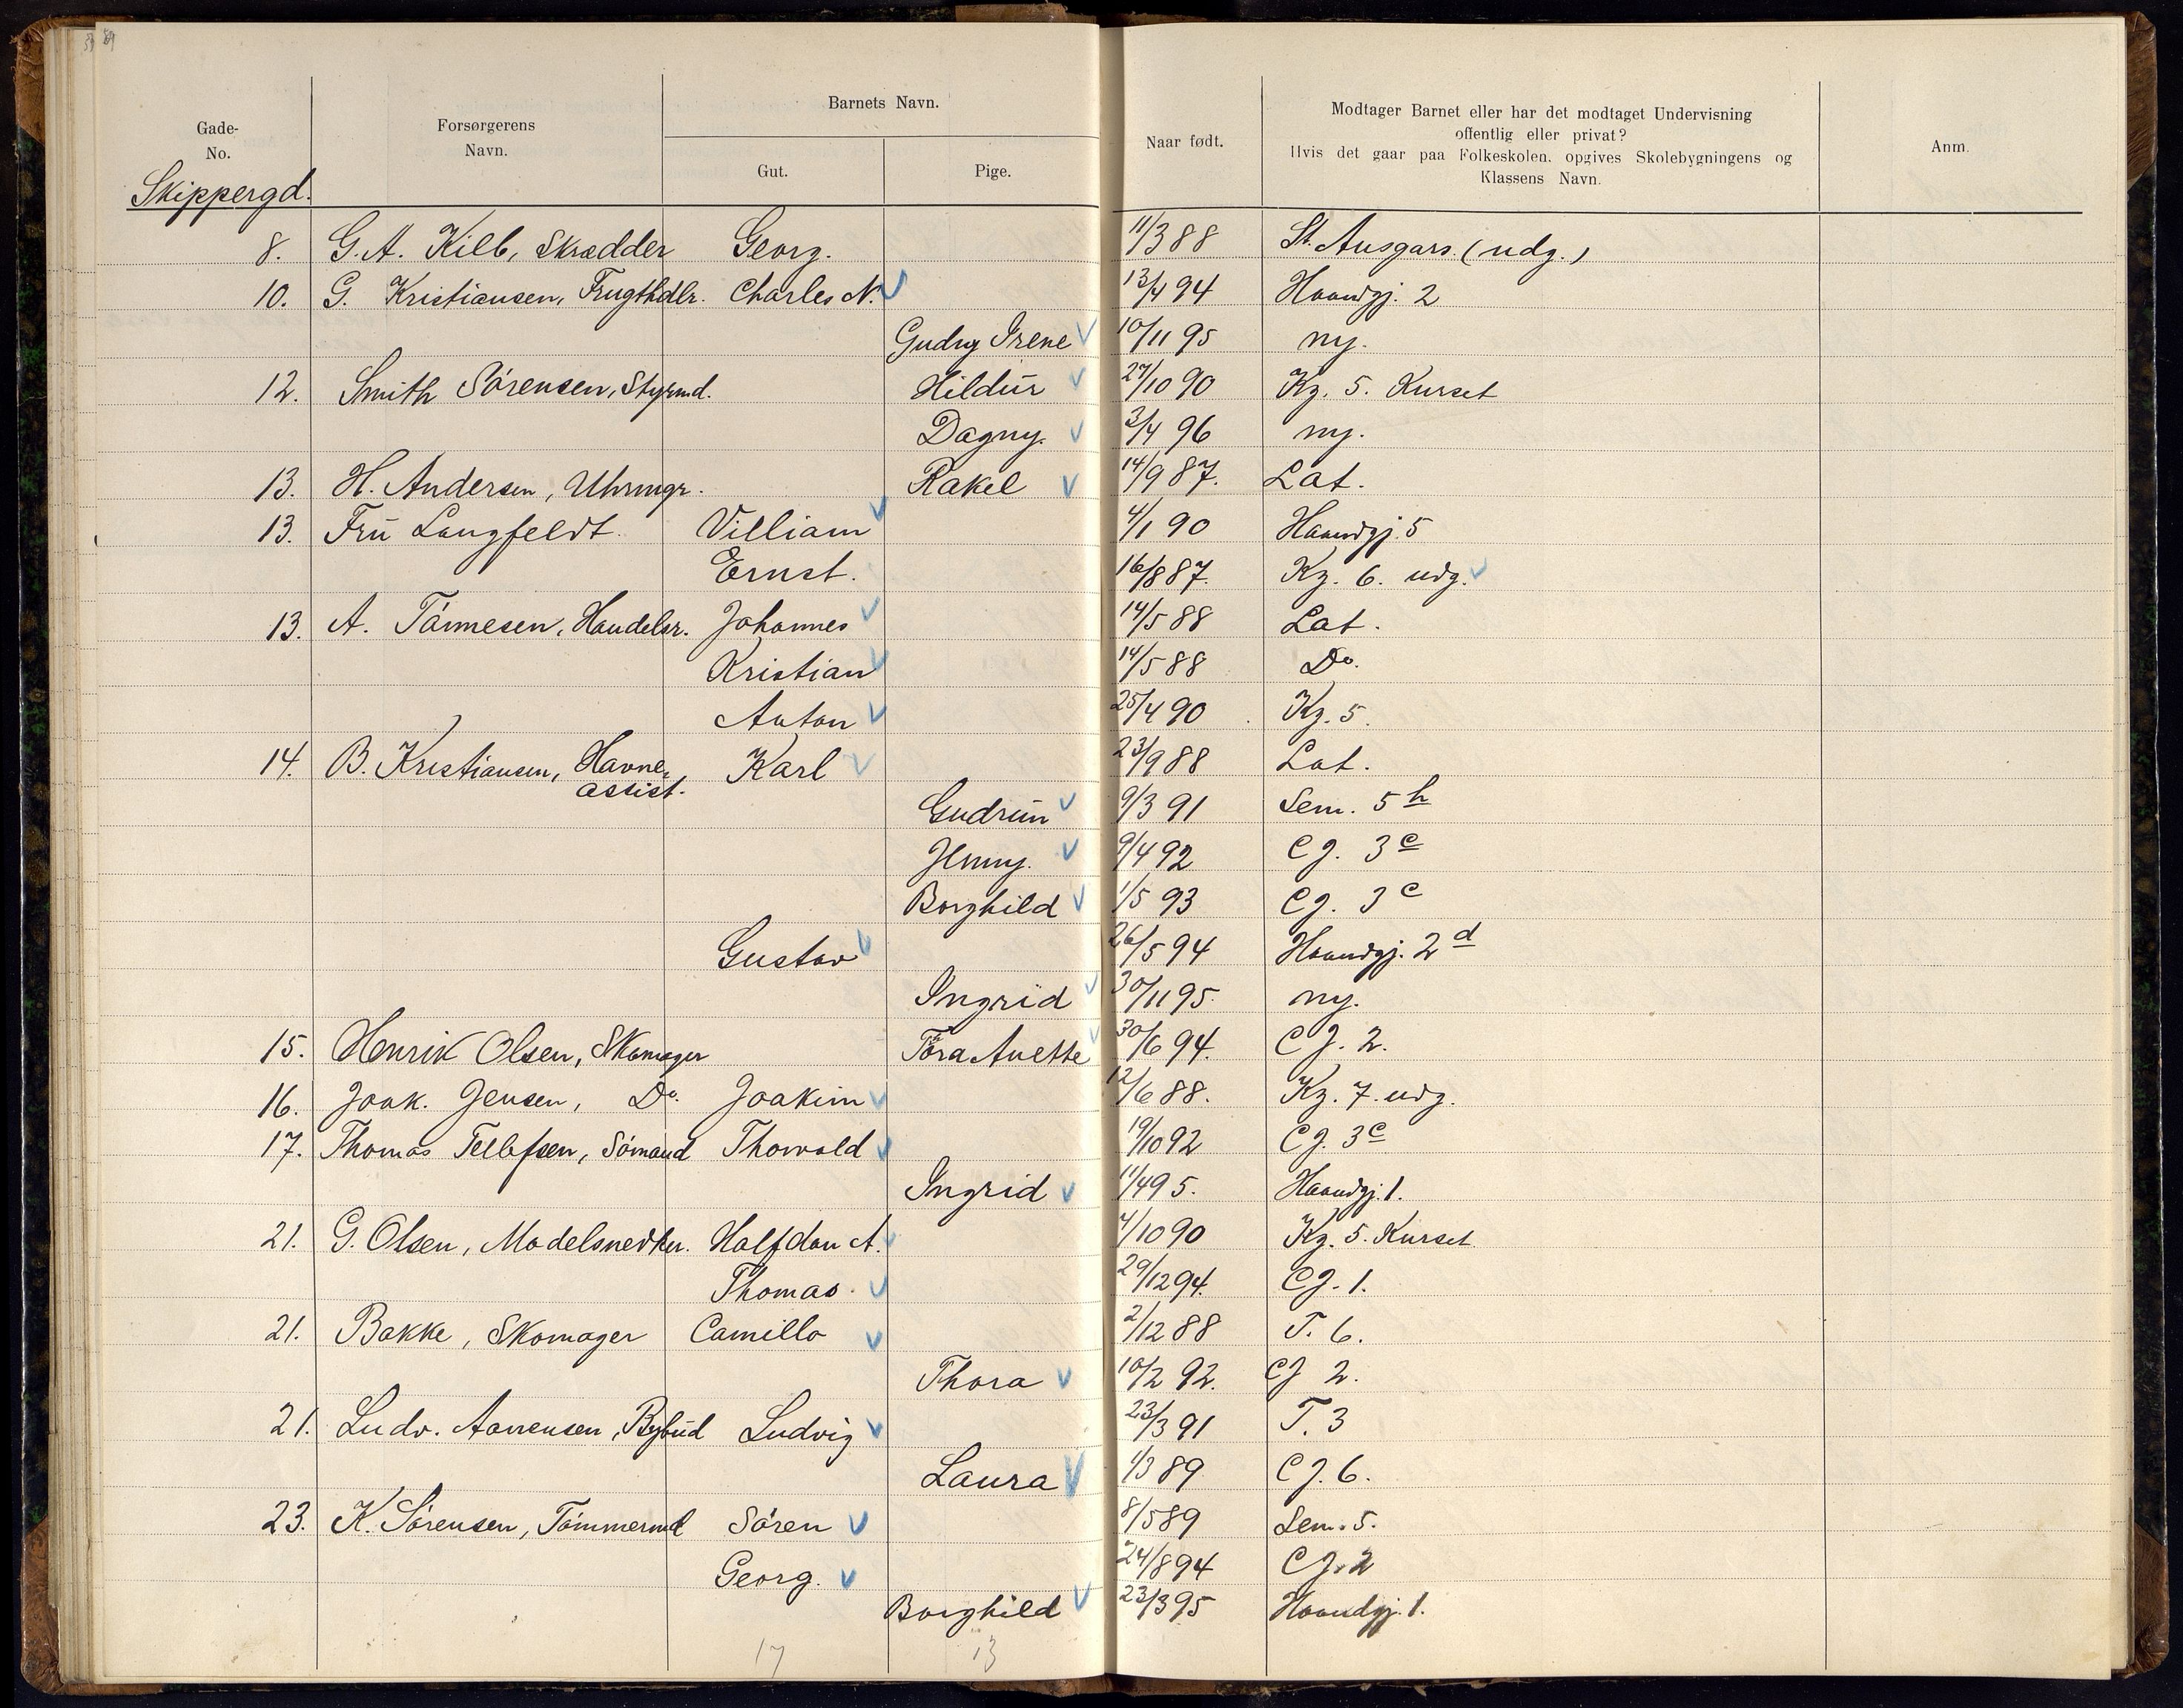 Gade-
No.
Forsørgerens
Navn.
Barnets Navn.
Gut.
Pige.
Naar født.
Modtager Barnet eller har det modtaget Undervisning
offentlig eller privat?
Hvis det gaar paa Folkeskolen, opgives Skolebygningens og
Klassens Navn.
Anm.
Skippergd.
8. G. A. Kilb, Skrædder Georg. 11/3 88 St. Ansgars. (udg.)
10. G. Kristiansen, Frugthdlr. Charles N. 13/4 94 Haandgj. 2
Gudny Irene 10/11 95 ny.
12. Smith Sörensen, Styrmd. Hildur 27/10 90 Kg. 5. Kurset
Dagny. 3/4 96 ny.
13. H. Andersen, Uhrmgr. Rakel 14/9 87. Lat.
13. Fru Langfeldt. Villiam 4/1 90 Haandgj. 5
Ernst. 16/8 87. Kg. 6. udg.
13. A. Tönnesen, Handelsr. Johannes 14/5 88 Lat.
Kristian 14/5 88 Do.
Anton 25/4 90 Kg. 5.
14. B. Kristiansen, Havne-
assist. Karl 23/9 88 Lat.
Gudrun 9/3 91 Sem. 5 h
Jenny. 9/4 92 CJ. 3 c
Borghild 1/5 93 CJ. 3 c
Gustav 26/5 94 Haandgj. 2 d
Ingrid 30/11 95. ny.
15. Henrik Olsen, Skomager Tora Anette 30/6 94. CJ. 2.
16. Joak. Jensen, Do. Joakim 12/6 88. Kg. 7. udg.
17. Thomas Tellefsen, Sömand Thorvald 19/10 92 CJ. 3 c
Ingrid 11/4 95. Haandgj. 1.
21. G. Olsen, Modelsnedker. Halfdan A. 4/10 90 Kg. 5. Kurset
Thomas. 29/12 94. CJ. 1.
21. Bakke, Skomager Camillo 2/12 88 T. 6.
Thora 10/2 92. CJ 2.
21. Ludv. Aanensen, Bybud Ludvig 23/3 91 T. 3
Laura 1/3 89 CJ. 6.
23. K. Sörensen, Tömmermd Sören 8/5 89 Sem. 5.
Georg. 24/8 94 CJ. 2
Borghild 23/3 95 Haandgj. 1.
17 13